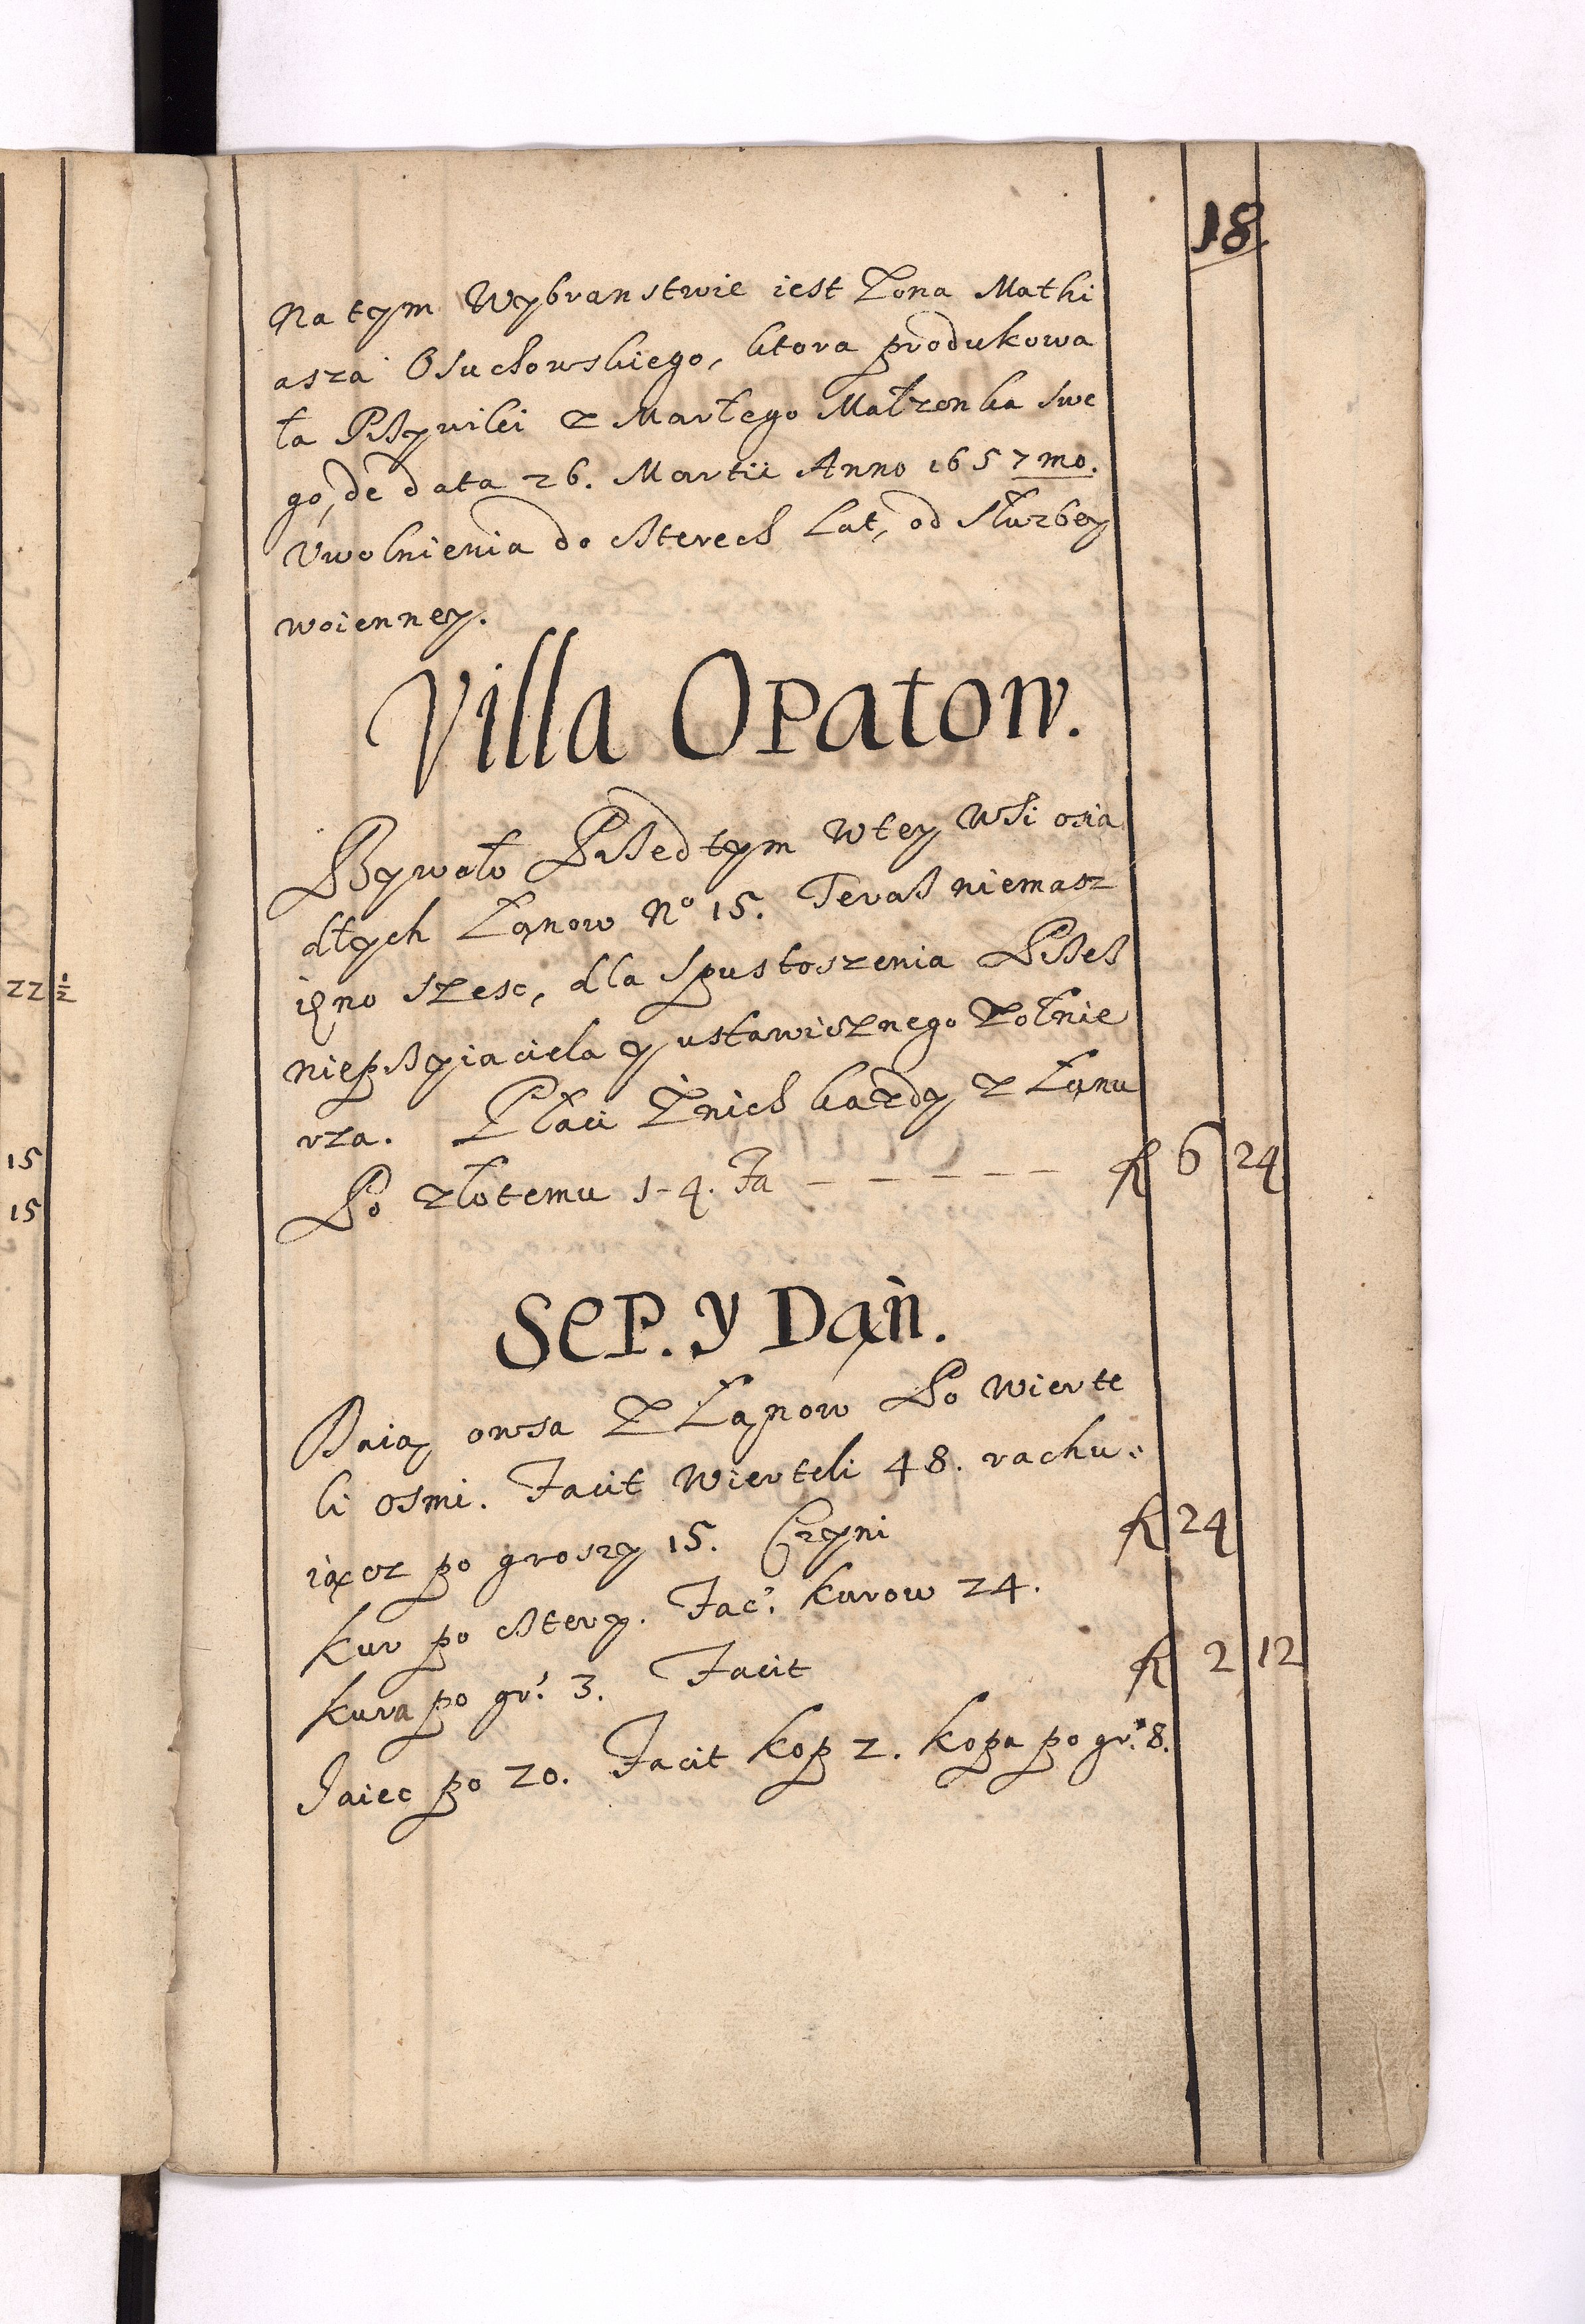 18
Na tym Wybranstwie iest Zona Mathi
asza Osuchowskiego, ktora produkowa
ła Przywilei z Marłego Małzonka swe
go, de data 26. Martii Anno 1657mo.
Uwolnienia do czterech Lat, od Słuzbey
woienney.
Villa Opatow.
Bywało Przedtym wtey wsi osia
dłych Łanow No 15. Teraz niemasz
ięno szesc, dla spustoszenia Przez
nieprzyiaciela y ustawicznego Zołnie
rza. Płaci Znich kazdy z Łanu
Po złotemu 1-4. Fa f 6 24
Sep. y Dań.
Daią owsa z Łanow Po wierte
li osmi. Facit Wierteli 48. rachu
iącz po groszy 15. Czyni f 24
Kur po cztery. Fac: Kurow 24.
Kura po gr: 3. Facit f 2 12
Jaiec po 20. Facit Kop 2. Kopa po gr: 8.
22 1/2
15
15